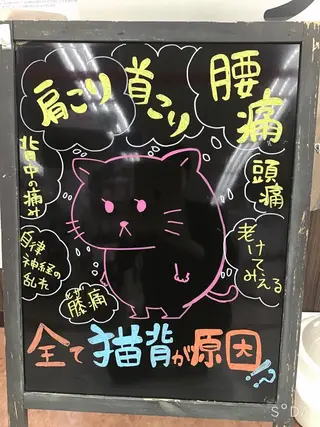 肩こり
首こり
腰痛
背中の痛み
頭痛
自律
神経の
乱れ
老けて
みえる
膝痛
全て猫背が原因!?
S°DA